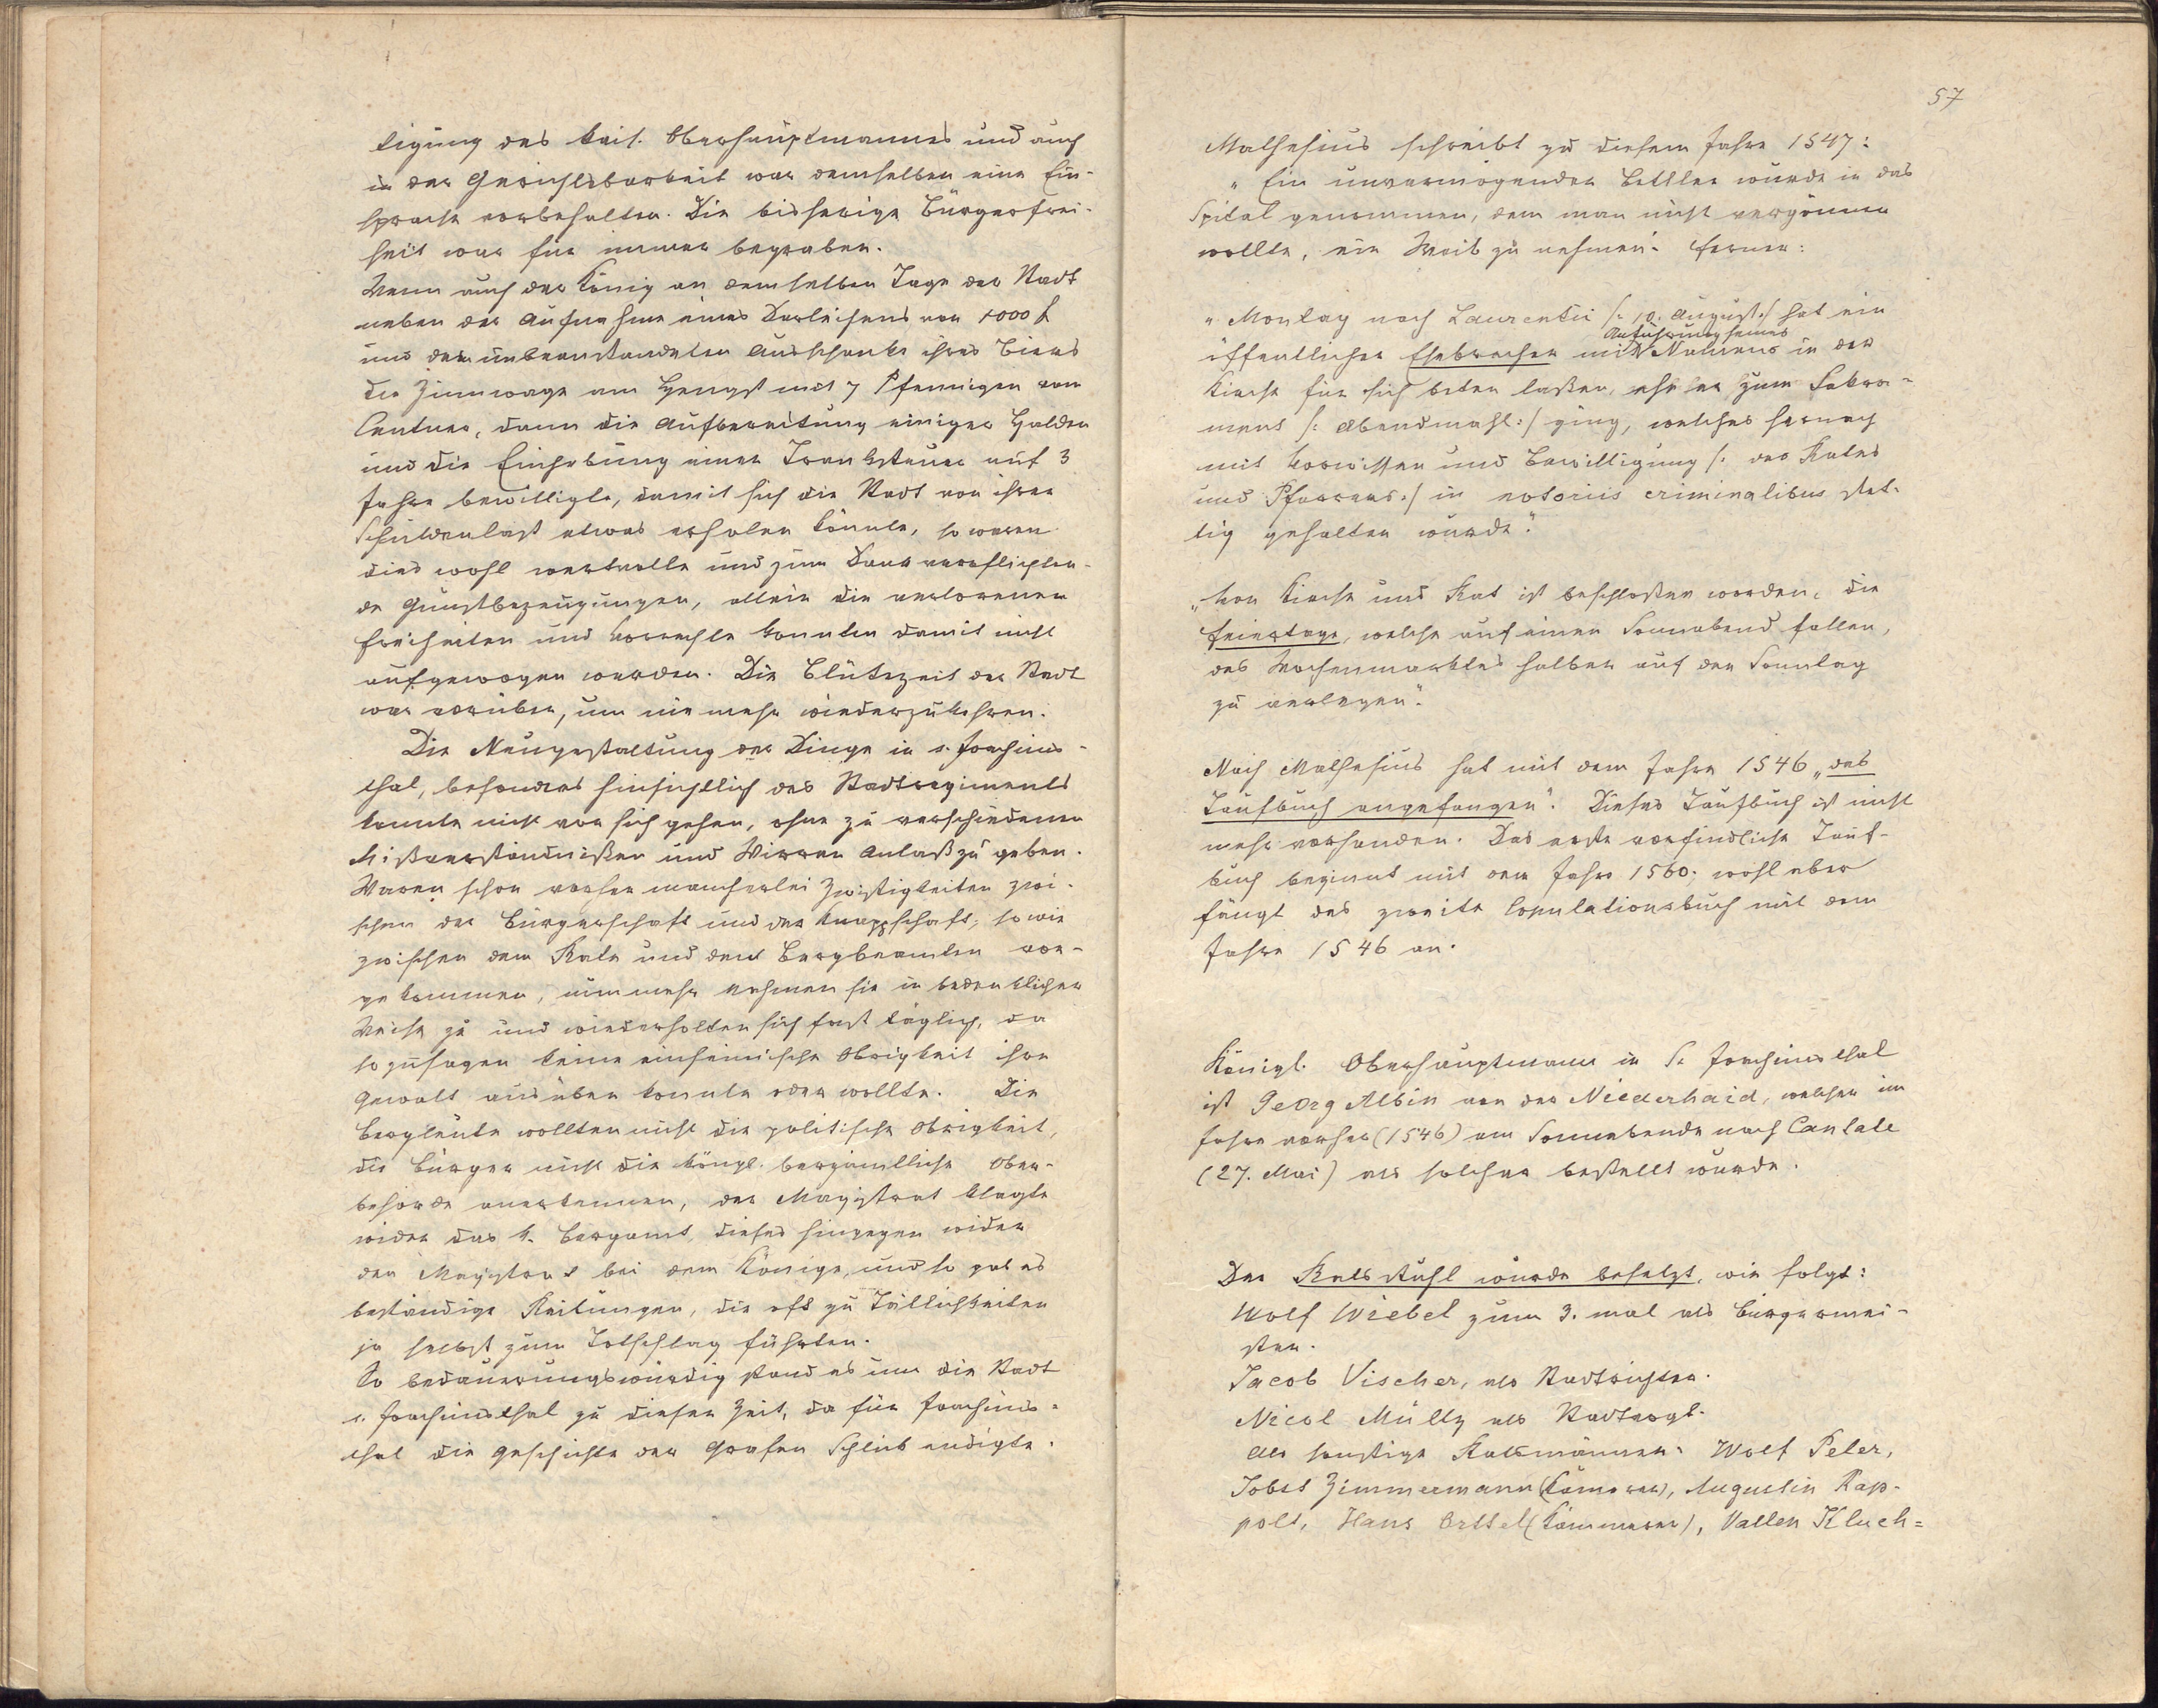 tigung des kais. Oberhauptmannes und auch
in der Gerichtsbarkeit war demselben eine Ein-
sprache vorbehalten. Die bisherige Bürgerfrei-
heit war für immer begraben.
Wenn auch der König an demselben Tage der Stadt
neben der Aufnahme eines Darleihens von 1000 f
und dem unbeanstandeten Ausschanke ihres Bieres
die Zinnwage am Hengst mit 7 Pfennigen vom
Centner, dann die Aufbereitung einiger Halden
und die Einhebung einer Tranksteuer auf 3
Jahre bewilligte, damit sich die Stadt von ihrer
Schuldenlast etwas erholen könnte, so waren
dies wohl wertvolle und zum Dank verpflichten-
de Gunstbezeugungen, allein die verlorenen
Freiheiten und Vorrechte konnten damit nicht
aufgewogen werden. Die Blütezeit der Stadt
war vorüber, um nie mehr wiederzukehren.
Die Neugestaltung der Dinge in s. Joachims-
thal, besonders hinsichtlich des Stadtregiments
konnte nicht vor sich gehen, ohne zu verschiedenen
Mißverständnißen und Wirren Anlaß zu geben.
Waren schon vorher mancherlei Zwistigkeiten zwi-
schen der Bürgerschaft und der Knappschaft, sowie
zwischen dem Rate und den Bergbeamten vor-
gekommen, nunmehr nahmen sie in bedenklicher
Weise zu und wiederholten sich fast täglich, da
sozusagen keine einheimische Obrigkeit ihre
Gewalt ausüben konnte oder wollte. Die
Bergleute wollten nicht die politische Obrigkeit,
die Bürger nicht die königl. bergämtliche Ober-
behörde anerkennen, der Magistrat klagte
wider das k. Bergamt, dieses hingegen wider
den Magistrat bei dem Könige, und so gab es
beständige Reibungen, die oft zu Tätlichkeiten
ja selbst zum Totschlag führten.
So bedauerungswürdig stand es um die Stadt
s. Joachimsthal zu dieser Zeit, da für Joachims-
thal die Geschichte der Grafen Schlick endigte.
57
Mathesius schreibt zu diesem Jahre 1547:
"Ein unvermögender Bettler wurde in das
Spital genommen, dem man nicht vergönnen
wollte, ein Weib zu nehmen". Ferner:
"Montag nach Laurentii /: 10. August :/ hat ein
Anführung seines
öffentlicher Ehebrecher mit Namens in der
Kirche für sich beten laßen, ehe er zum Sakra-
ment /: Abendmahl :/ ging, welches hernach
mit Vorwissen und Bewilligung /: des Rates
und Pfarrers :/ in notoriis criminalibus stet-
tig gehalten wurde".
"Von Kirche und Rat ist beschloßen worden, die
Feiertage, welche auf einen Sonnabend fallen,
des Wochenmarktes halber auf den Sonntag
zu verlegen".
Nach Mathesius hat mit dem Jahre 1546 "das
Taufbuch angefangen". Dieses Taufbuch ist nicht
mehr vorhanden. Das erste vorfindliche Tauf-
buch beginnt mit dem Jahre 1560; wohl aber
fängt das zweite Copulationsbuch mit dem
Jahre 1546 an.
Königl. Oberhauptmann in St. Joachimsthal
ist Georg Albin von der Niederhaid, welcher im
Jahre vorher (1546) am Sonnabende nach Cantate
(27. Mai) als solcher bestellt wurde.
Der Ratsstuhl wurde besetzt, wie folgt:
Wolf Wiebel zum 3. mal als Bürgermei-
ster.
Jacob Vischer, als Stadtrichter.
Nicol Mülly als Stadtvogt.
Als sonstige Ratsmänner: Wolf Peler,
Jobst Zimmermann (Kämerer), Augustin Rap-
polt, Hans Örttel (Kämmerer), Valten Kluch=